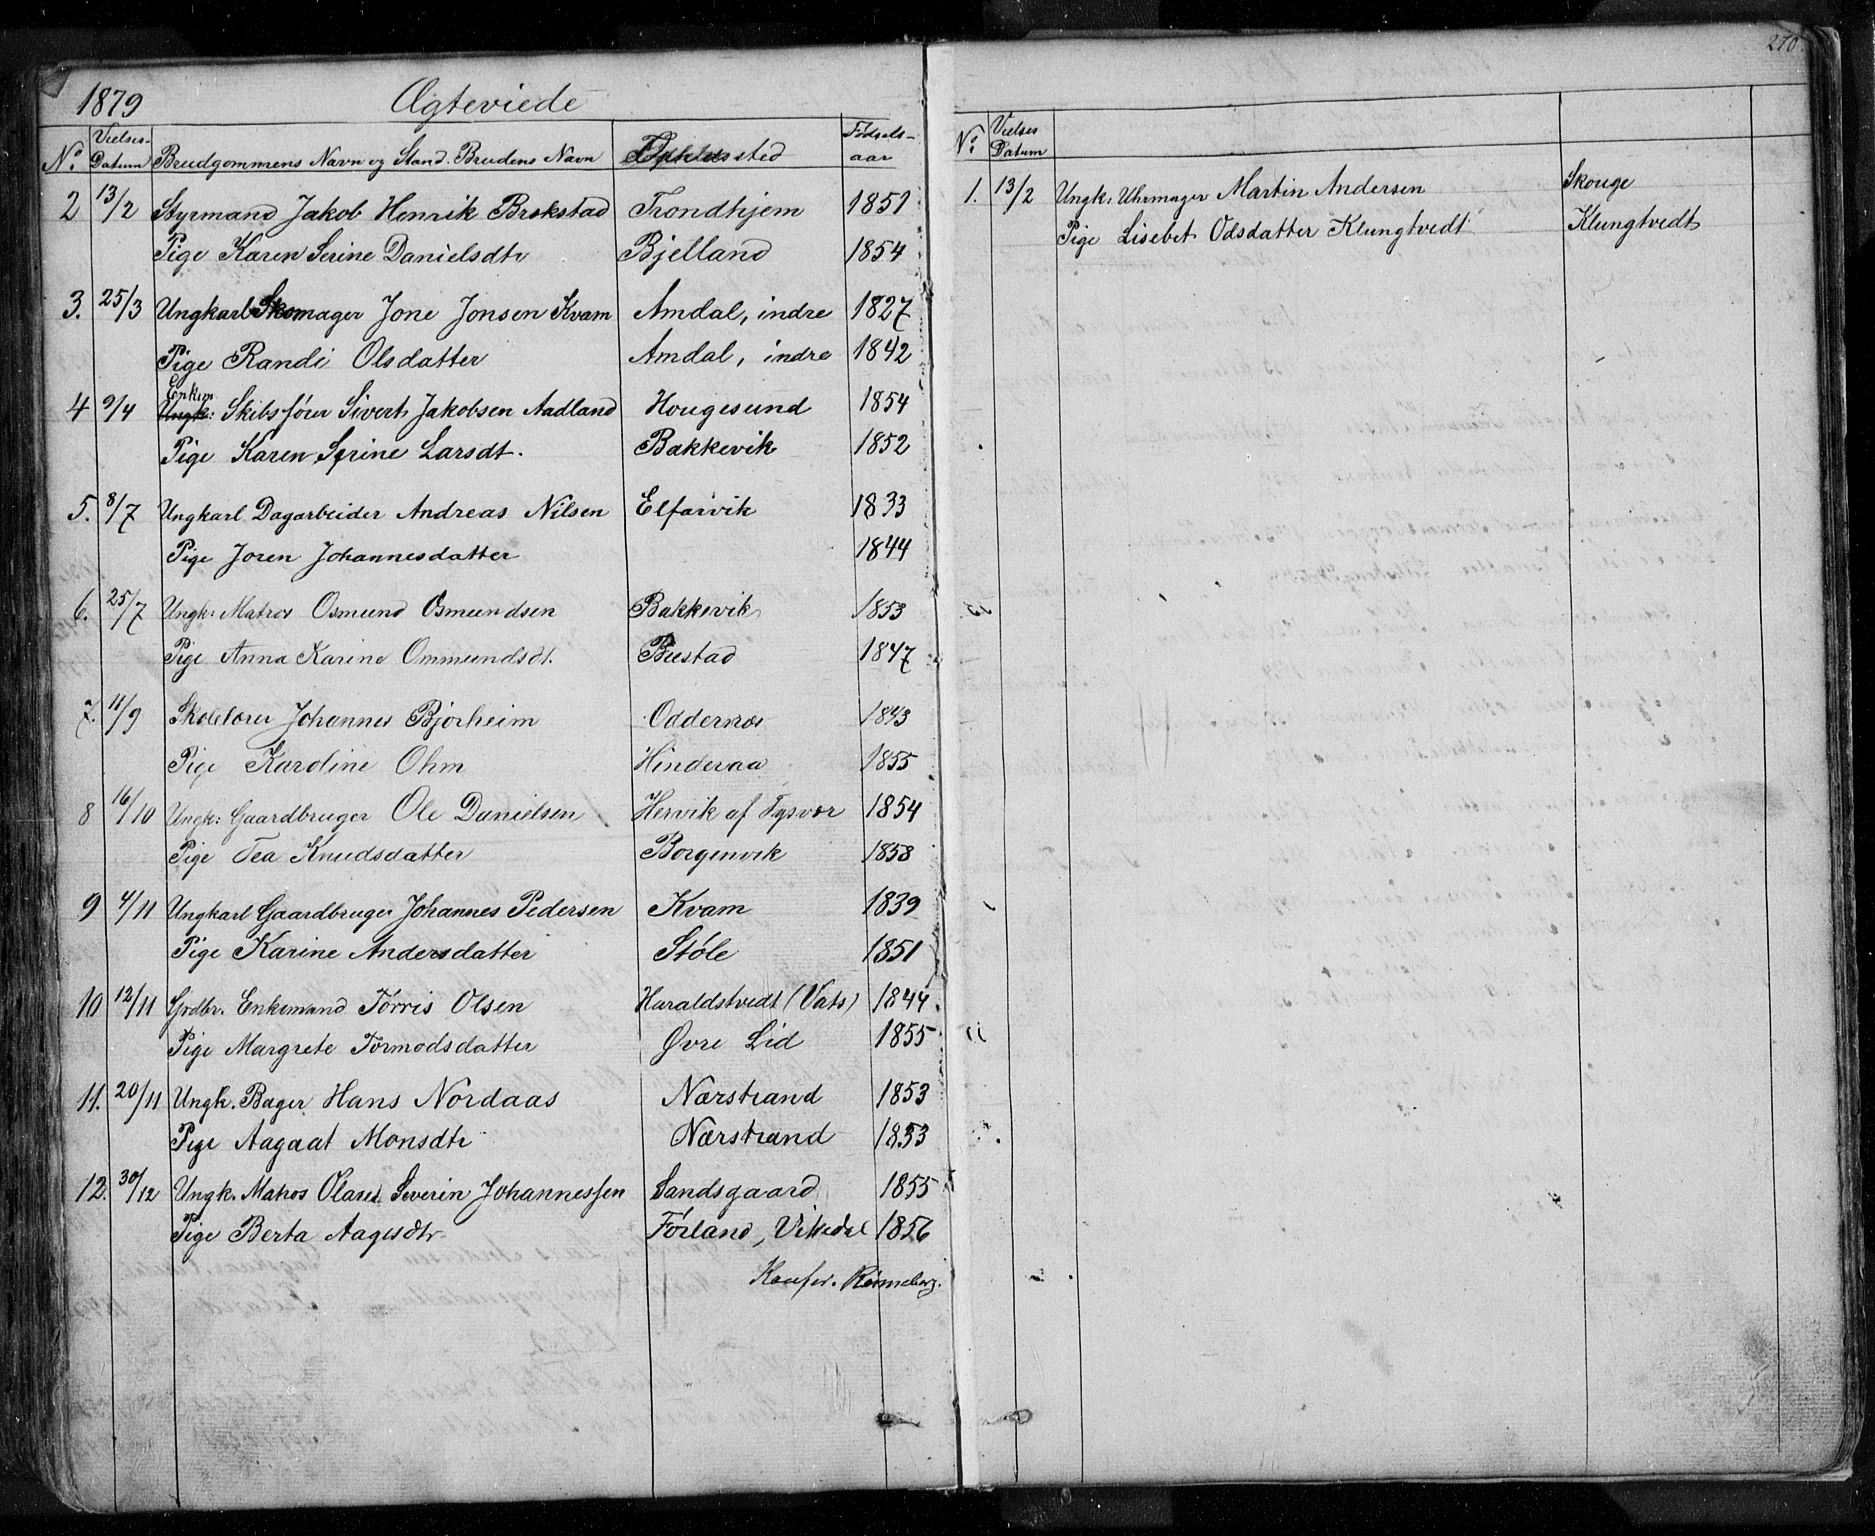 1879 Ægteviede
No. Vielses-Datum Brudgommens Navn og Stand. Brudens Navn sted Fødsels-aar
2 13/2 Styrmand Jakob Henrik Brekstad Trondhjem 1851
Pige Karen Serine Danielsdtr Bjelland 1854
3. 25/3 Ungkarl Skomager Jone Jonsen Kvam Amdal, indre 1827
Pige Randi Olsdatter Amdal, indre 1842
Enkem
4 9/4 Ungk: Skibsfører Sivert Jakobsen Aadland Hougesund 1854
Pige Karen Serine Larsdt. Bakkevik 1852
5. 8/7 Ungkarl Dagarbeider Andreas Nilsen Elfarvik 1833
Pige Joren Johannesdatter 1844
6. 25/7 Ungk: Matros Osmund Osmundsen Bakkevik 1853
Pige Anna Karine Ommundsdt. Bustad 1847
7. 11/9 Skolelærer Johannes Bjørheim Oddernæs 1843
Pige Karoline Ohm Hinderaa 1855
8 16/10 Ungk: Gaardbruger Ole Danielsen Hervik af Tysvær 1854
Pige Tea Knudsdatter Borgenvik 1858
9 4/11 Ungkarl Gaardbruger Johannes Pedersen Kvam 1839
Pige Karine Andersdatter Støle 1851
10 12/11 Grdbr. Enkemand Tørris Olsen Haraldstvedt (Vats) 1844
Pige Margrete Tormodsdatter Øvre Lid 1855
11. 20/11 Ungk. Bager Hans Nordaas Nærstrand 1853
Pige Aagaat Monsdtr Nærstrand 1853
12. 30/12 Ungk. Matros Olaus Severin Johannessen Sandsgaard 1855
Pige Berta Aagesdtr Førland, Vikedal 1856
Konfer. Rønneberg.
270
No. Vielses Datum
1. 13/2 Ungk. Uhrmager Martin Andersen Skouge
Pige Lisebet Odsdatter Klungtvedt Klungtvedt